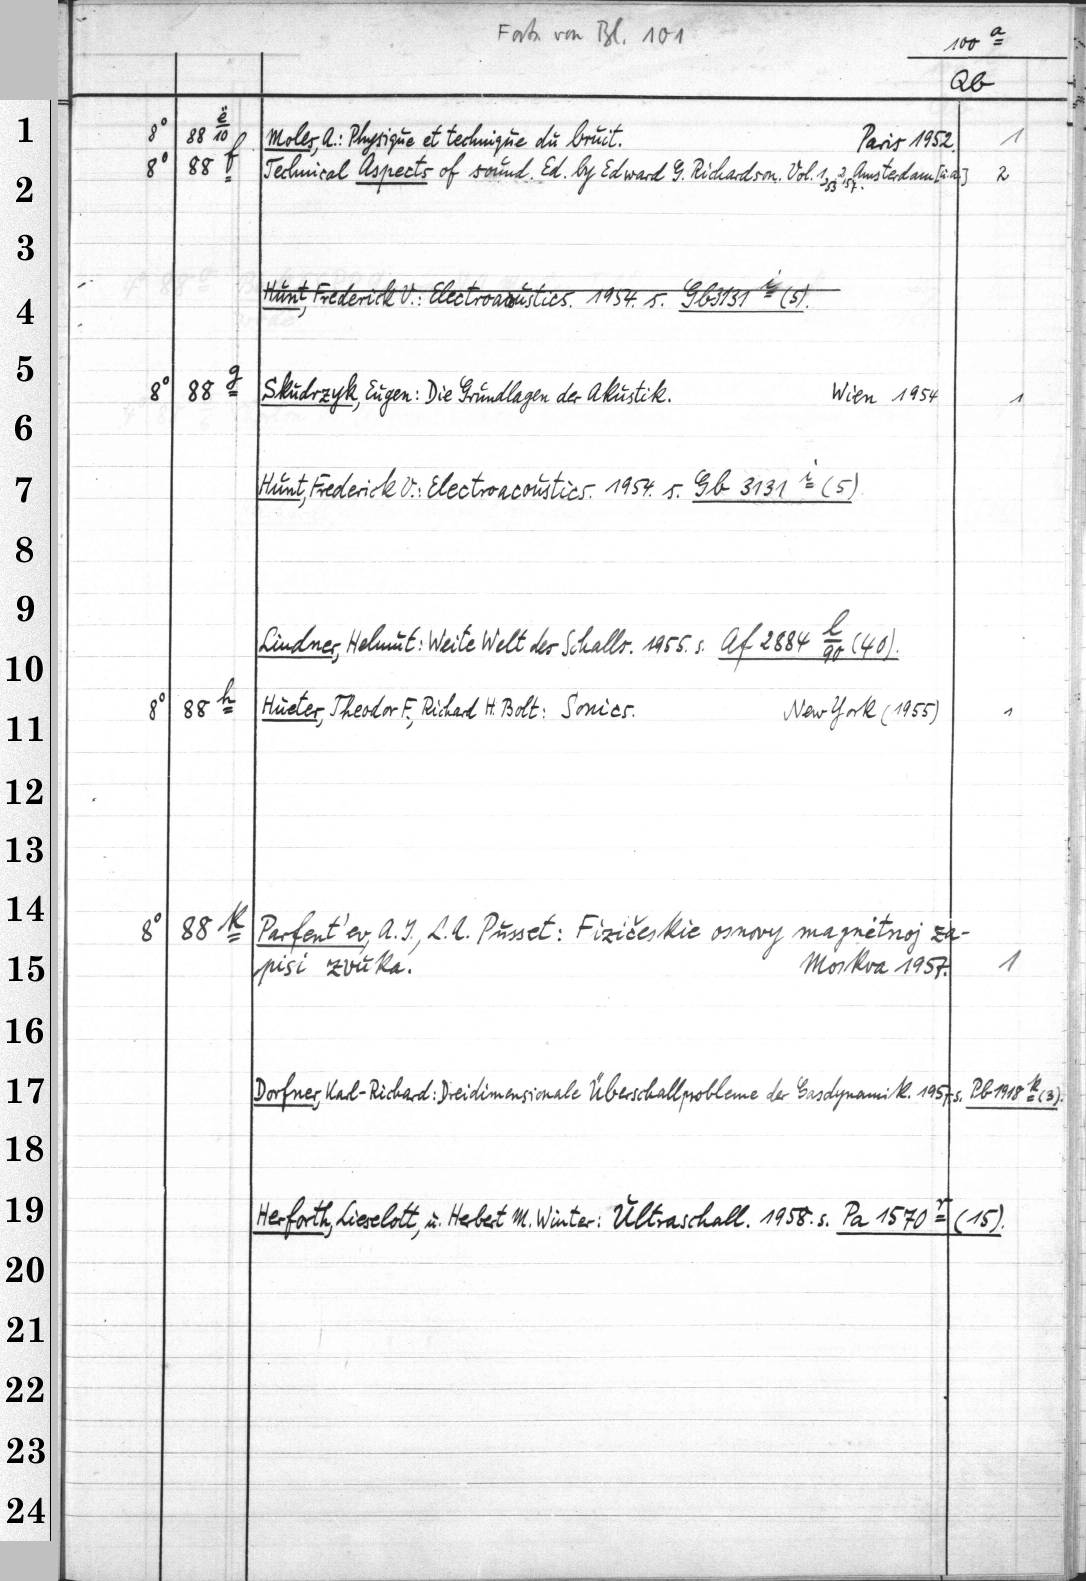 Forts. von Bl. 101
100 a
Qb
1 8° 88 ë/10 Moles, A.: Physique et technique du bruit. Paris 1952. 1
2 8° 88 f Technical Aspects of sound. Ed. by Edward G. Richardson. Vol. 1,53 2,57. Amsterdam [u.a.] 2
3
4 Hunt, Frederick V.: Electroacoustics. 1954. s. Gb 3131 i (5).
5 8° 88 g Skudrzyk, Eugen: Die Grundlagen der Akustik. Wien 1954 1
6
7 Hunt, Frederick V.: Electroacoustics. 1954. s. Gb 3131 i (5)
8
9
10 Lindner, Helmut: Weite Welt des Schalls. 1955. s. Af 2884 l/90 (40).
11 8° 88 h Hueter, Theodor F., Richard H. Bolt: Sonics. New York (1955) 1
12
13
14 8° 88 k Parfent'ev, A. I., L. A. Pusset: Fizičeskie osnovy magnitnoj za-
15 pisi zvuka. Moskva 1957. 1
16
17 Dorfner, Karl-Richard: Dreidimensionale Überschallprobleme der Gasdynamik. 1957. s. Pb 1918 k (3).
18
19 Herforth, Lieselott, u. Herbert M. Winter: Ultraschall. 1958. s. Pa 1570 r (15).
20
21
22
23
24